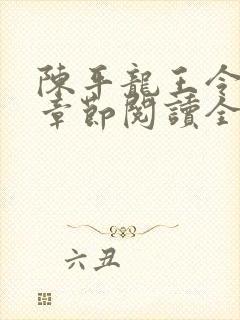 陳平龍王令
章節閱讀全
六丑